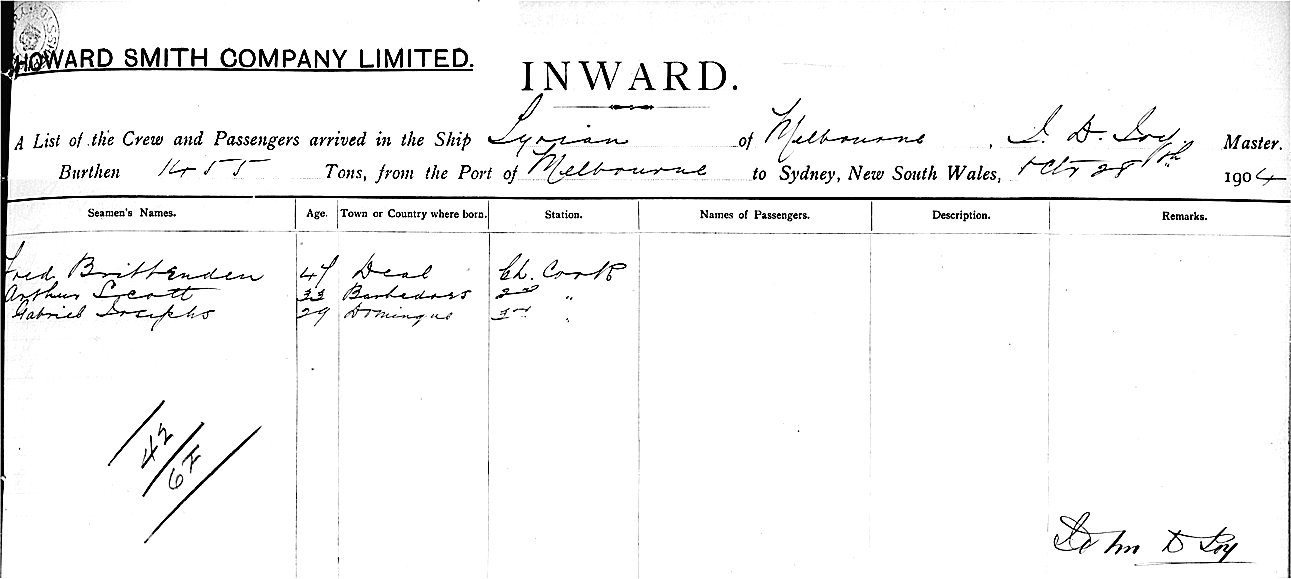 HOWARD SMITH COMPANY LIMITED.
INWARD.
A List of the Crew and Passengers arrived in the Ship Syrian of Melbourne, J. D. Joy Master.
Burthen 1455 Tons, from the Port of Melbourne to Sydney, New South Wales, Oct 28th 1904
Seamen's Names. Age. Town or Country where born. Station. Names of Passengers. Description. Remarks.
Fred Brittenden 47 Deal Ch. Cook
Arthur Scott 33 Barbedoes 2nd "
Gabriel Josephs 29 Domingue 3rd "
42
6F
John D Joy